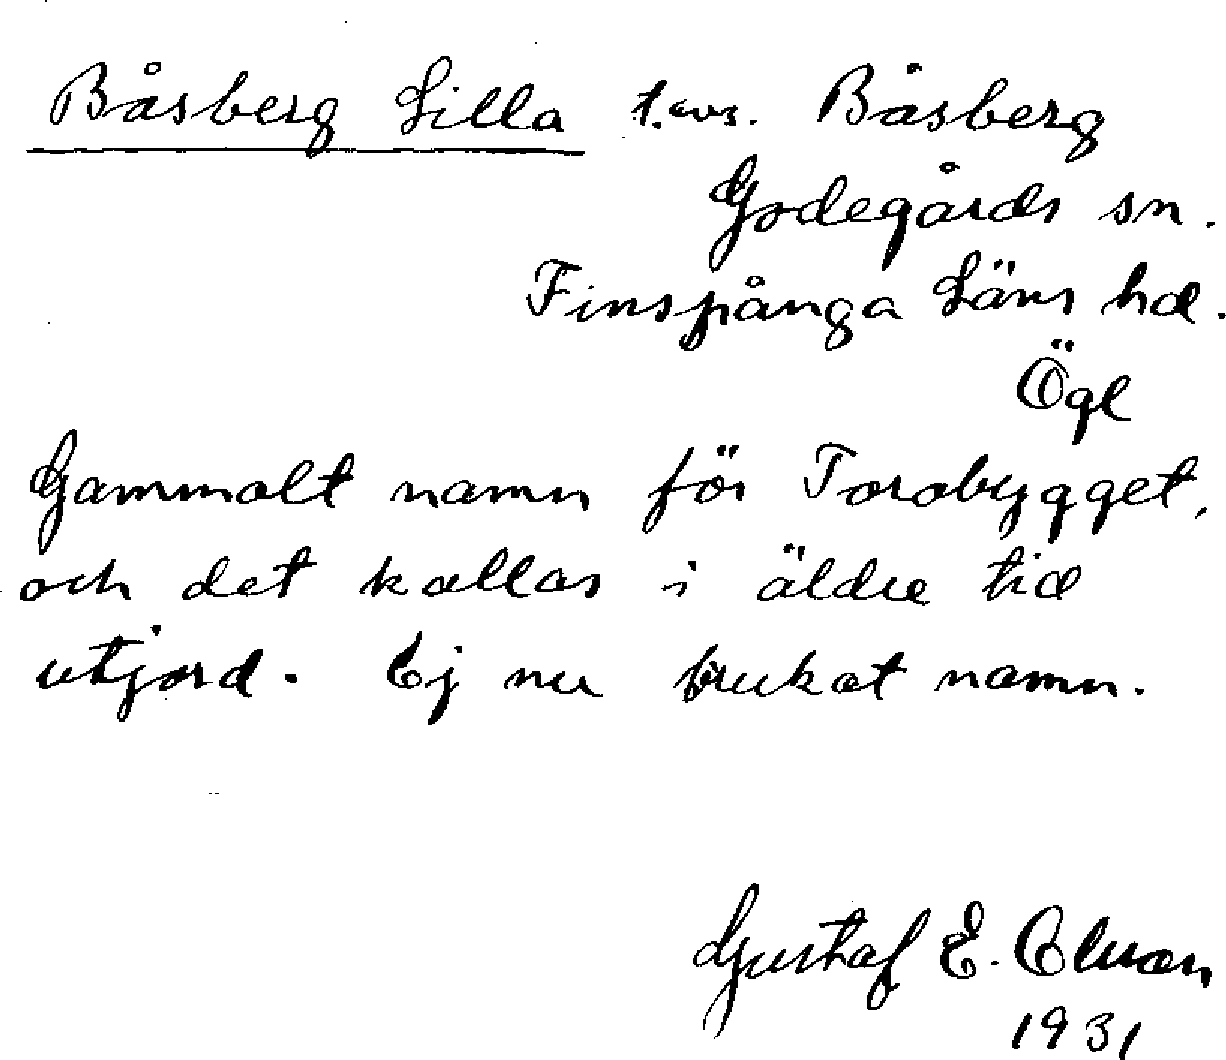 Båsberg Lilla t. avs. Båsberg
Godegårds sn.
Finspånga Läns hd.
Ögl
Gammalt namn för Torobygget,
och det kallas i äldre tid
utjord. Ej nu brukat namn.
Gustaf E.
1931